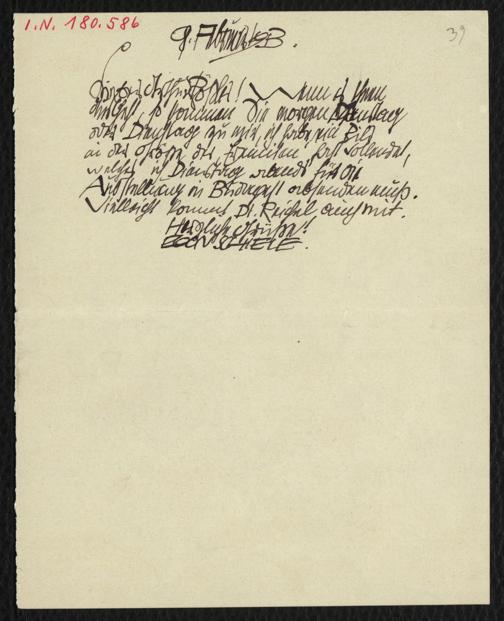 I.N. 180.586
39
9. Februar 1913.
! Wenn es Ihnen
möglich, so kommen Sie morgen
oder Dienstag zu mir, ich habe ein Bild
in der Größe der Familien fast vollendet,
welches ich Dienstag abends für die
Ausstellung in Budapest absenden muß.
Vielleicht kommt Dr. Reichel auch mit.
Herzliche Grüße!
EGON SCHIELE.